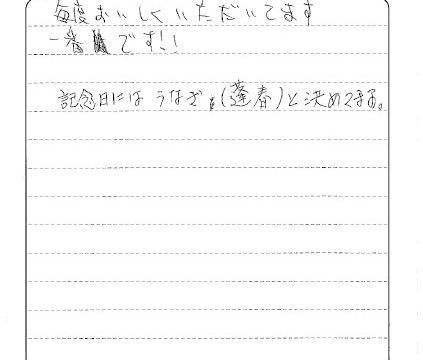 毎度おいしくいただいてます
一番です!!
記念日には うなぎ(蓬春)と決めてます。